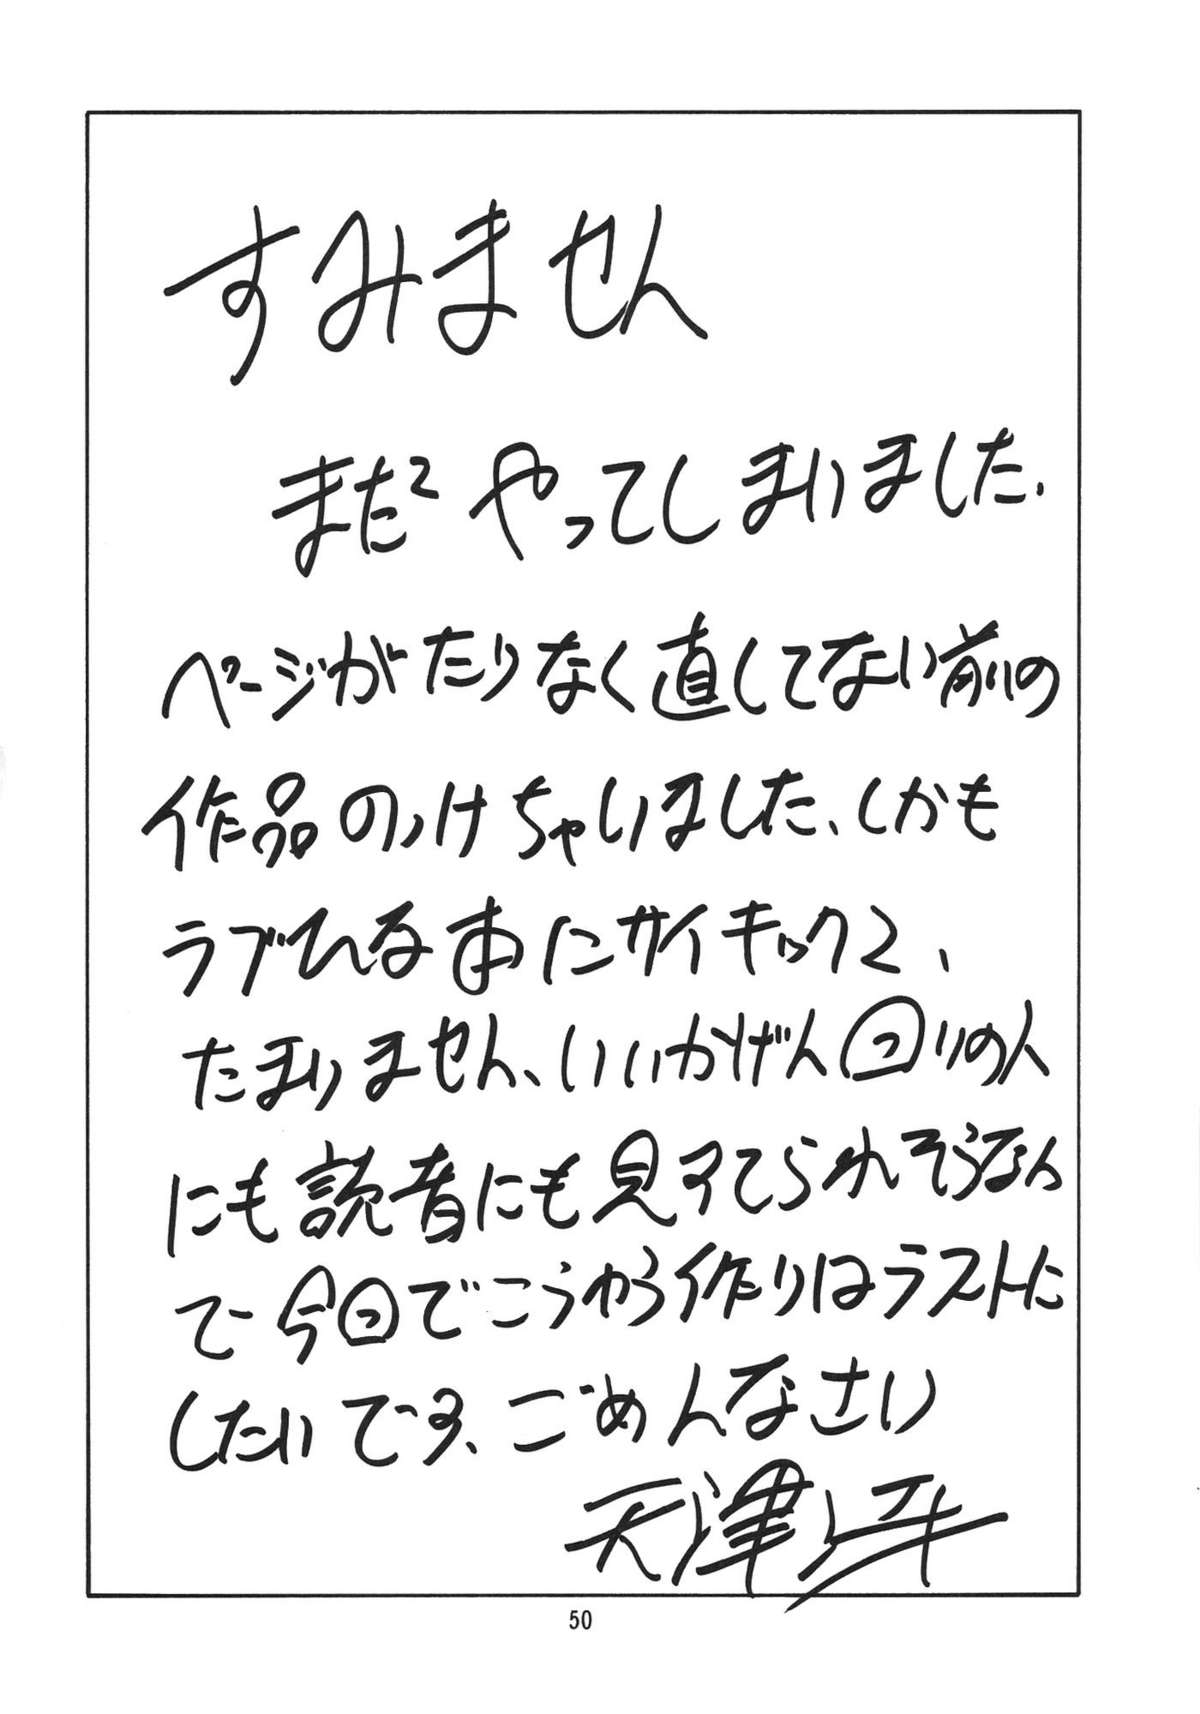 すみません
まだ2やってしまいました、
ページがたりなく直してない前の
作品のっけちゃいました、しかも
ラブひな本にサイキック2、
たまりません、いいかげん回りの人
にも読者にも見すてられそうなん
で今回でこうゆう作りはラストに
したいです、ごめんなさい
天津
50